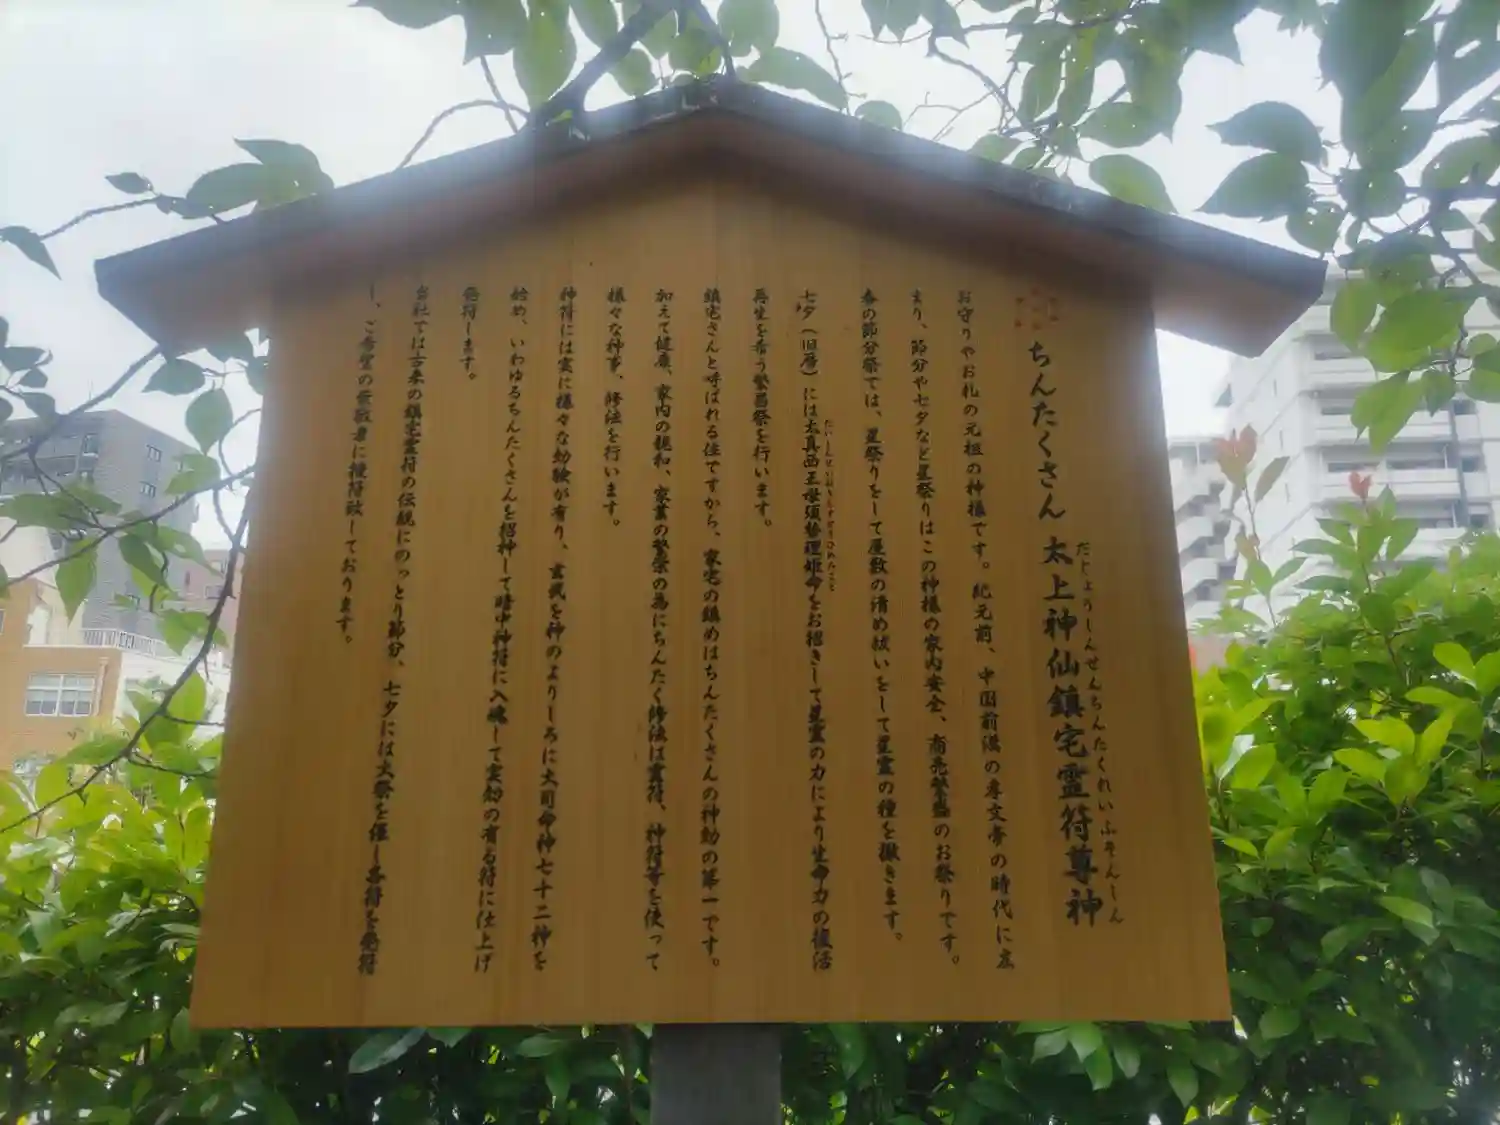 ちんたくさん 太上神仙鎮宅霊符尊神
だじょうしんせんちんたくれいふそんしん
お守りやお札の元祖の神様です。紀元前、中国前漢の孝文帝の時代に広
まり、節分や七夕など星祭りはこの神様の家内安全、商売繁盛のお祭りです。
春の節分祭では、星祭りをして屋敷の清め祓いをして星霊の種を撒きます。
七夕（旧暦）には太真西王母須勢理姫命をお招きして星霊の力により生命力の復活
再生を希う繁昌祭を行います。
鎮宅さんと呼ばれる位ですから、家宅の鎮めはちんたくさんの神効の第一です。
加えて健康、家内の親和、家業の繁栄の為にちんたく修法は霊符、神符等を使って
様々な神事、修法を行います。
神符には実に様々な効験が有り、玄武を神のよりしろに大司命神七十二神を
始め、いわゆるちんたくさんを招神して暗中神符に入魂して霊効の有る符に仕上げ
発符します。
当社では古来の鎮宅霊符の伝統にのっとり節分、七夕には大祭を催し各符を発符
し、ご希望の崇敬者に授符致しております。